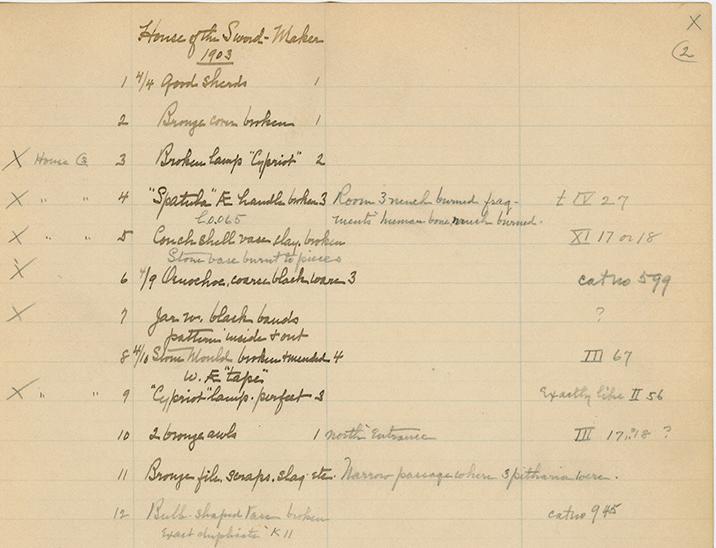 X
House of the Sword-Maker 2
1903
1 4/4 Good sherds 1
2 Bronze cover broken 1
X House G 3 Broken lamp "Cypriot" 2
X " " 4 "Spatula" Æ handle broken 3 Room 3 much burned frag- t IV 27
L 0.065 ments human bone, much burned.
X " " 5 Conch shell vase, clay, broken XI 17 or 18
Stone vase burnt to pieces
X 6 4/9 Oinochoe, coarse black ware 3 cat no 599
X 7 Jar w. black bands ?
pattern inside & out
8 4/10 Stone Mould broken & mended 4 III 67
w. Æ "tape"
X " " 9 "Cypriot" lamp. perfect 3 Exactly like II 56
10 2 bronze awls 1 north Entrance III 17, 18 ?
11 Bronze file, scraps, slag etc. Narrow passage where 3 pitharia were.
12 Bull-shaped Vase broken cat no 945
Exact duplicate K 11